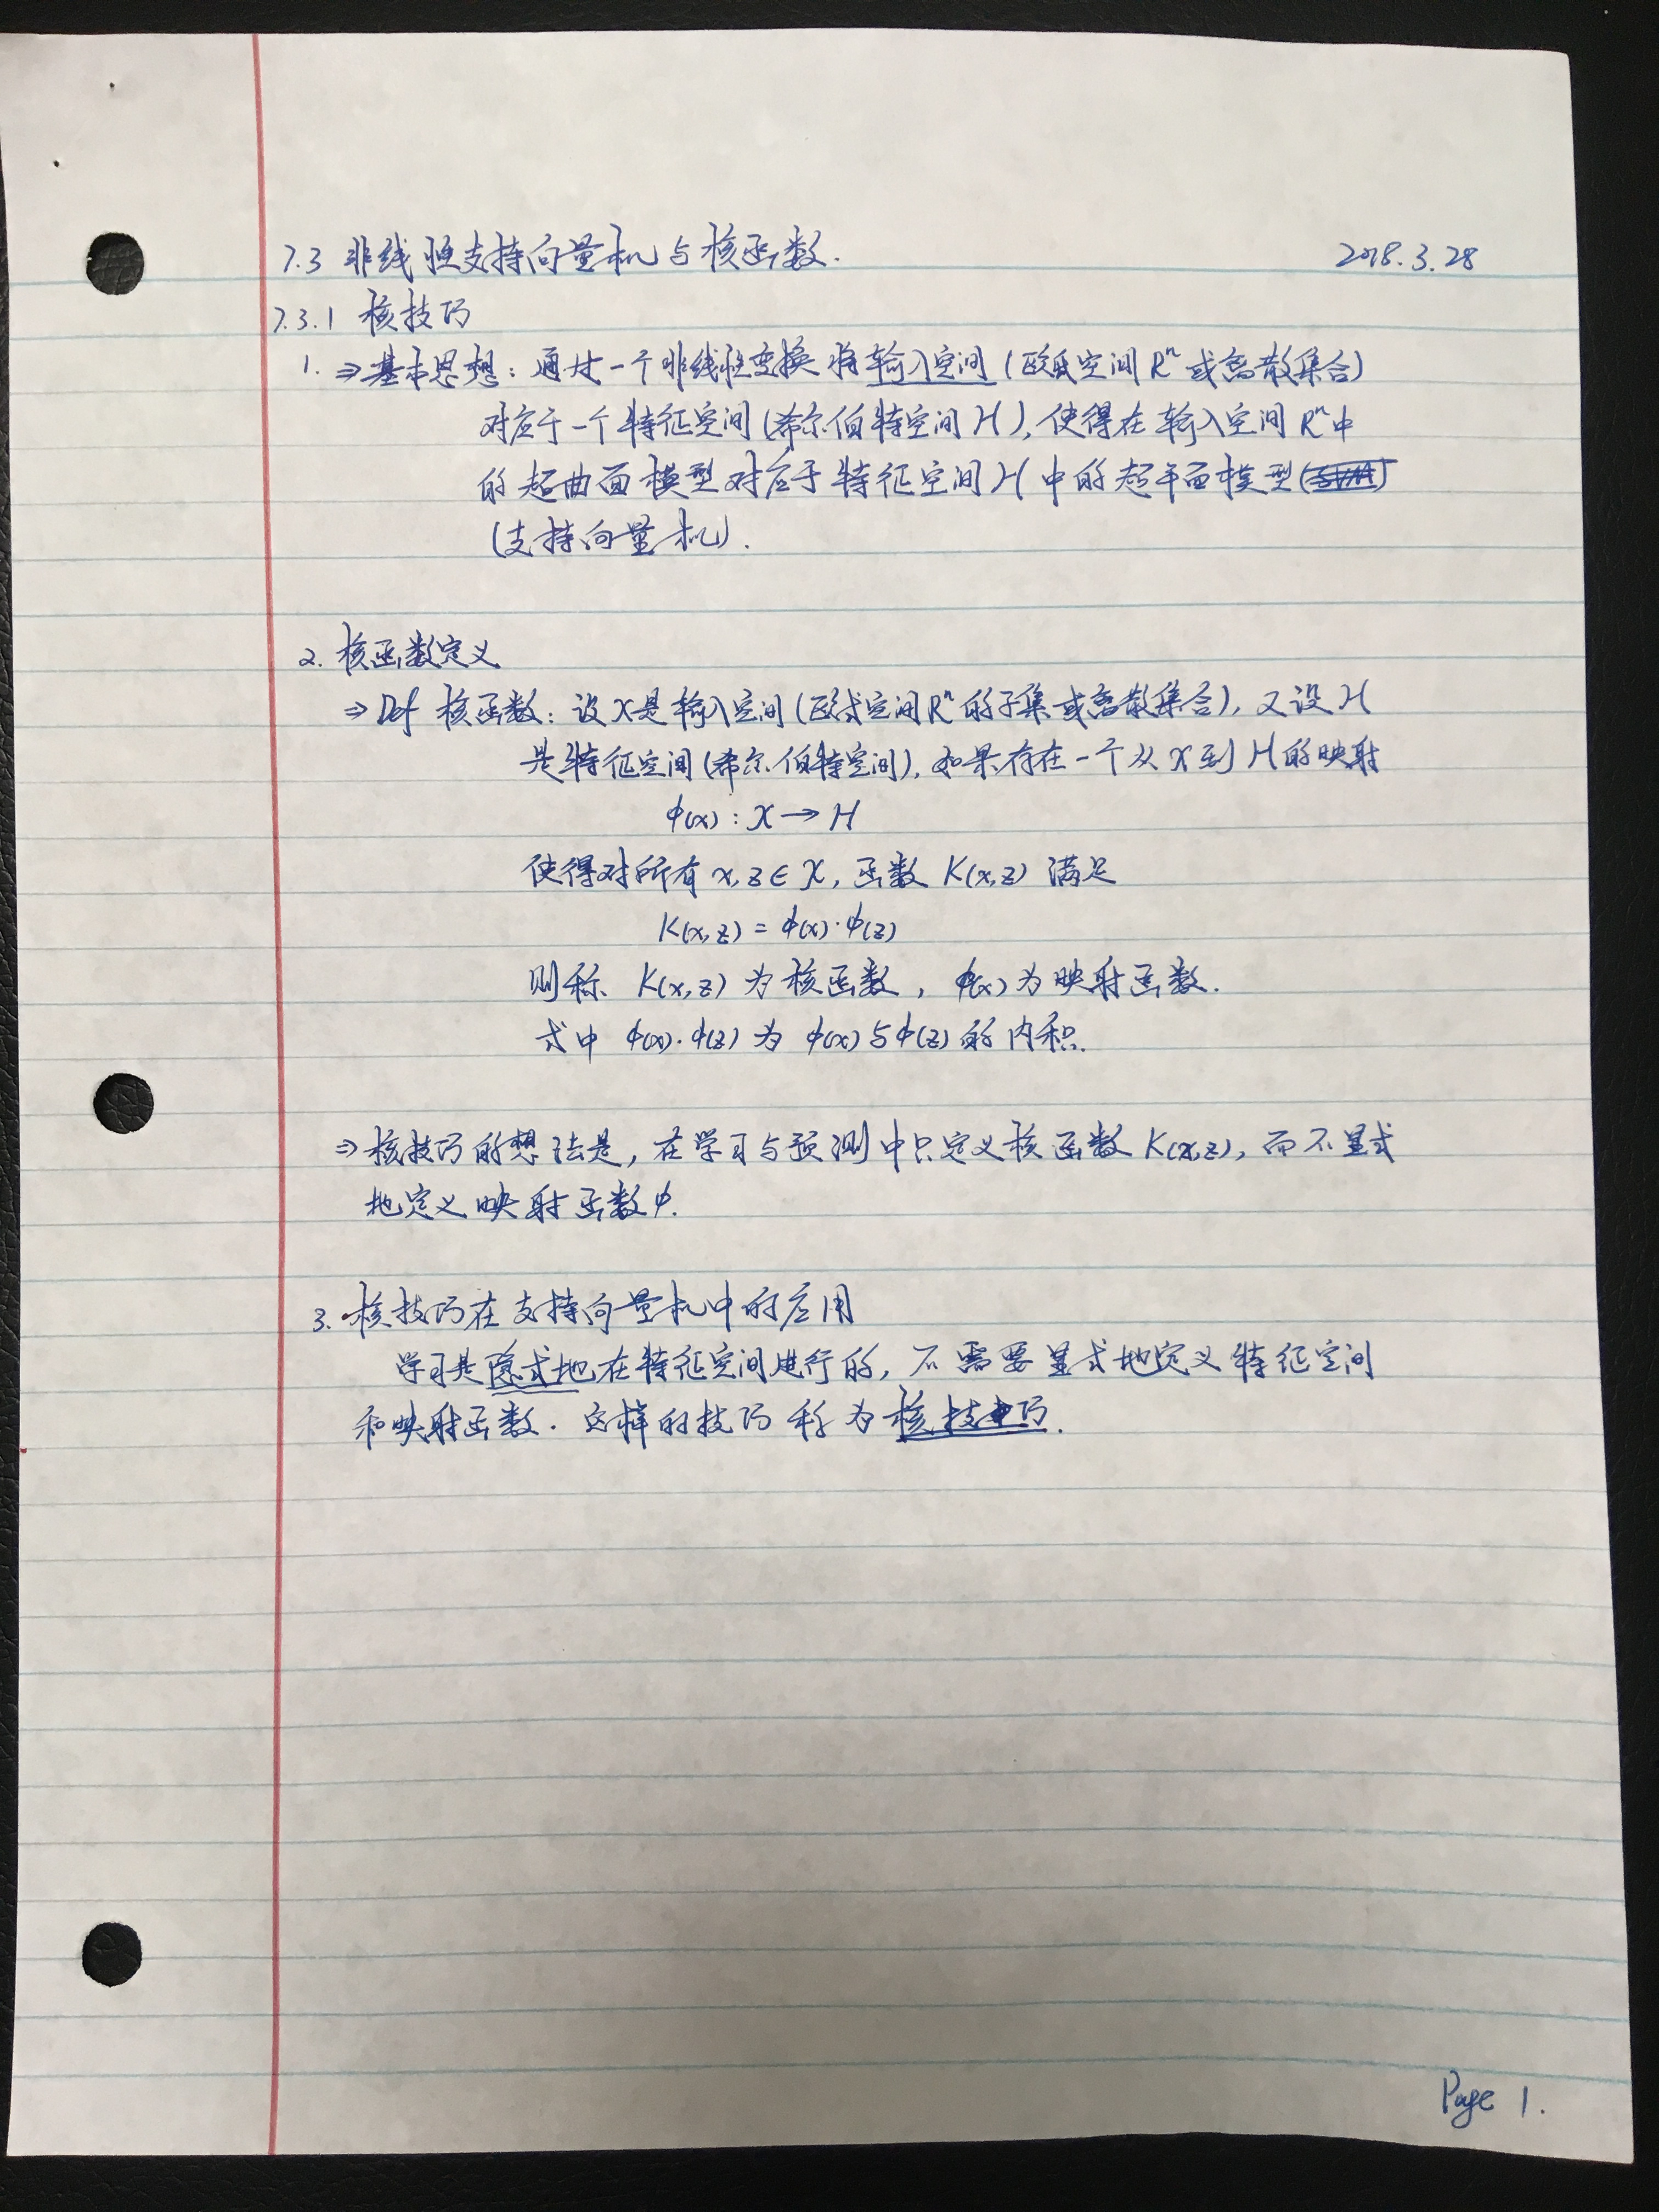 7.3 非线性支持向量机与核函数.
2018.3.28
7.3.1 核技巧
1. ⇒基本思想: 通过一个非线性变换将输入空间 (欧氏空间 Rⁿ 或离散集合)
对应于一个特征空间 (希尔伯特空间 H), 使得在输入空间 Rⁿ 中
的超曲面模型对应于特征空间 H 中的超平面模型
(支持向量机).
2. 核函数定义
⇒ Def 核函数: 设 X 是输入空间 (欧式空间 Rⁿ 的子集或离散集合), 又设 H
是特征空间 (希尔伯特空间), 如果存在一个从 X 到 H 的映射
ϕ(x) : X → H
使得对所有 x, z ∈ X, 函数 K(x,z) 满足
K(x,z) = ϕ(x)·ϕ(z)
则称 K(x,z) 为核函数, ϕ(x) 为映射函数.
式中 ϕ(x)·ϕ(z) 为 ϕ(x) 与 ϕ(z) 的内积.
⇒ 核技巧的想法是, 在学习与预测中只定义核函数 K(x,z), 而不显式
地定义映射函数 ϕ.
3. 核技巧在支持向量机中的应用
学习是隐式地在特征空间进行的, 不需要显式地定义特征空间
和映射函数. 这样的技巧称为核技巧.
Page 1.